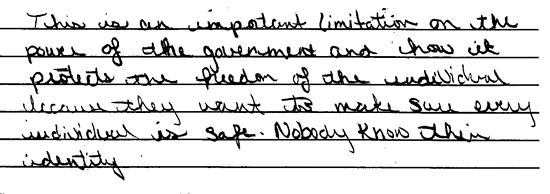 This is an important limitation on the
power of the government and how it
protects the freedom of the individual
because they want to make sure every
individual is safe. Nobody know their
identity